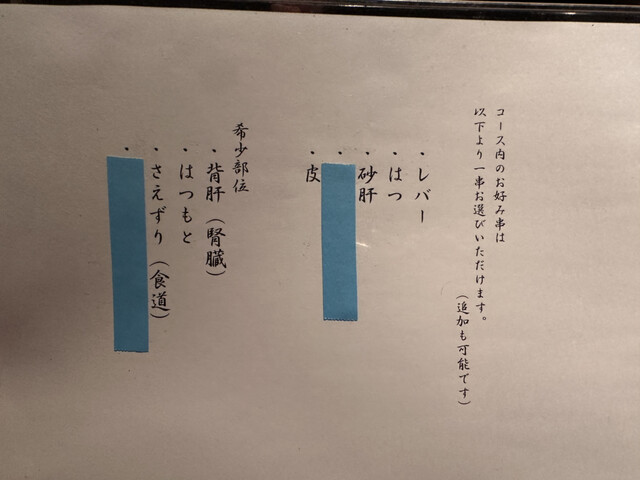 コース内のお好み串は
以下より一串お選びいただけます。
(追加も可能です)
・レバー
・はつ
・砂肝
・
・皮
希少部位
・背肝(腎臓)
・はつもと
・さえずり(食道)
・